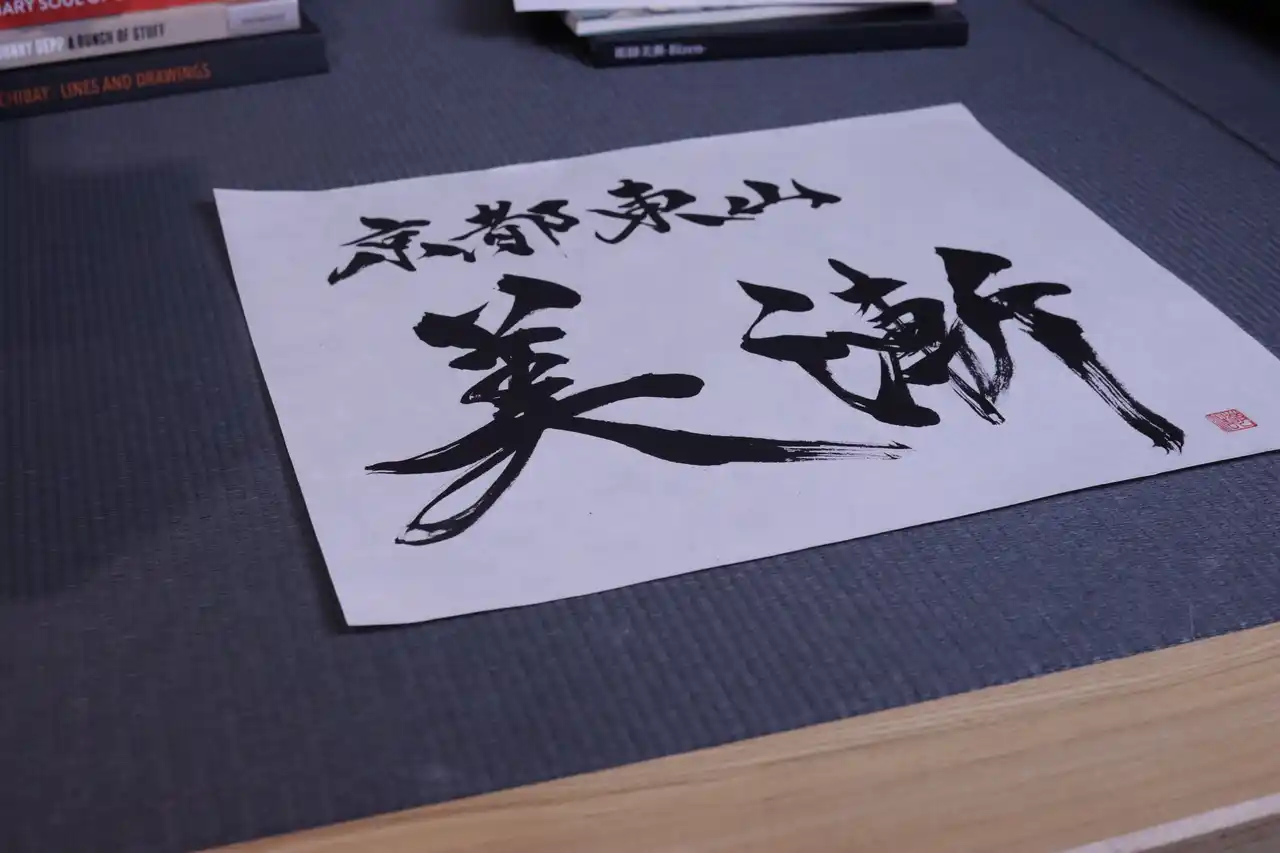 ARY SOUL OF
A BUNCH OF STUFF
LINES AND DRAWINGS
京都東山
美漸